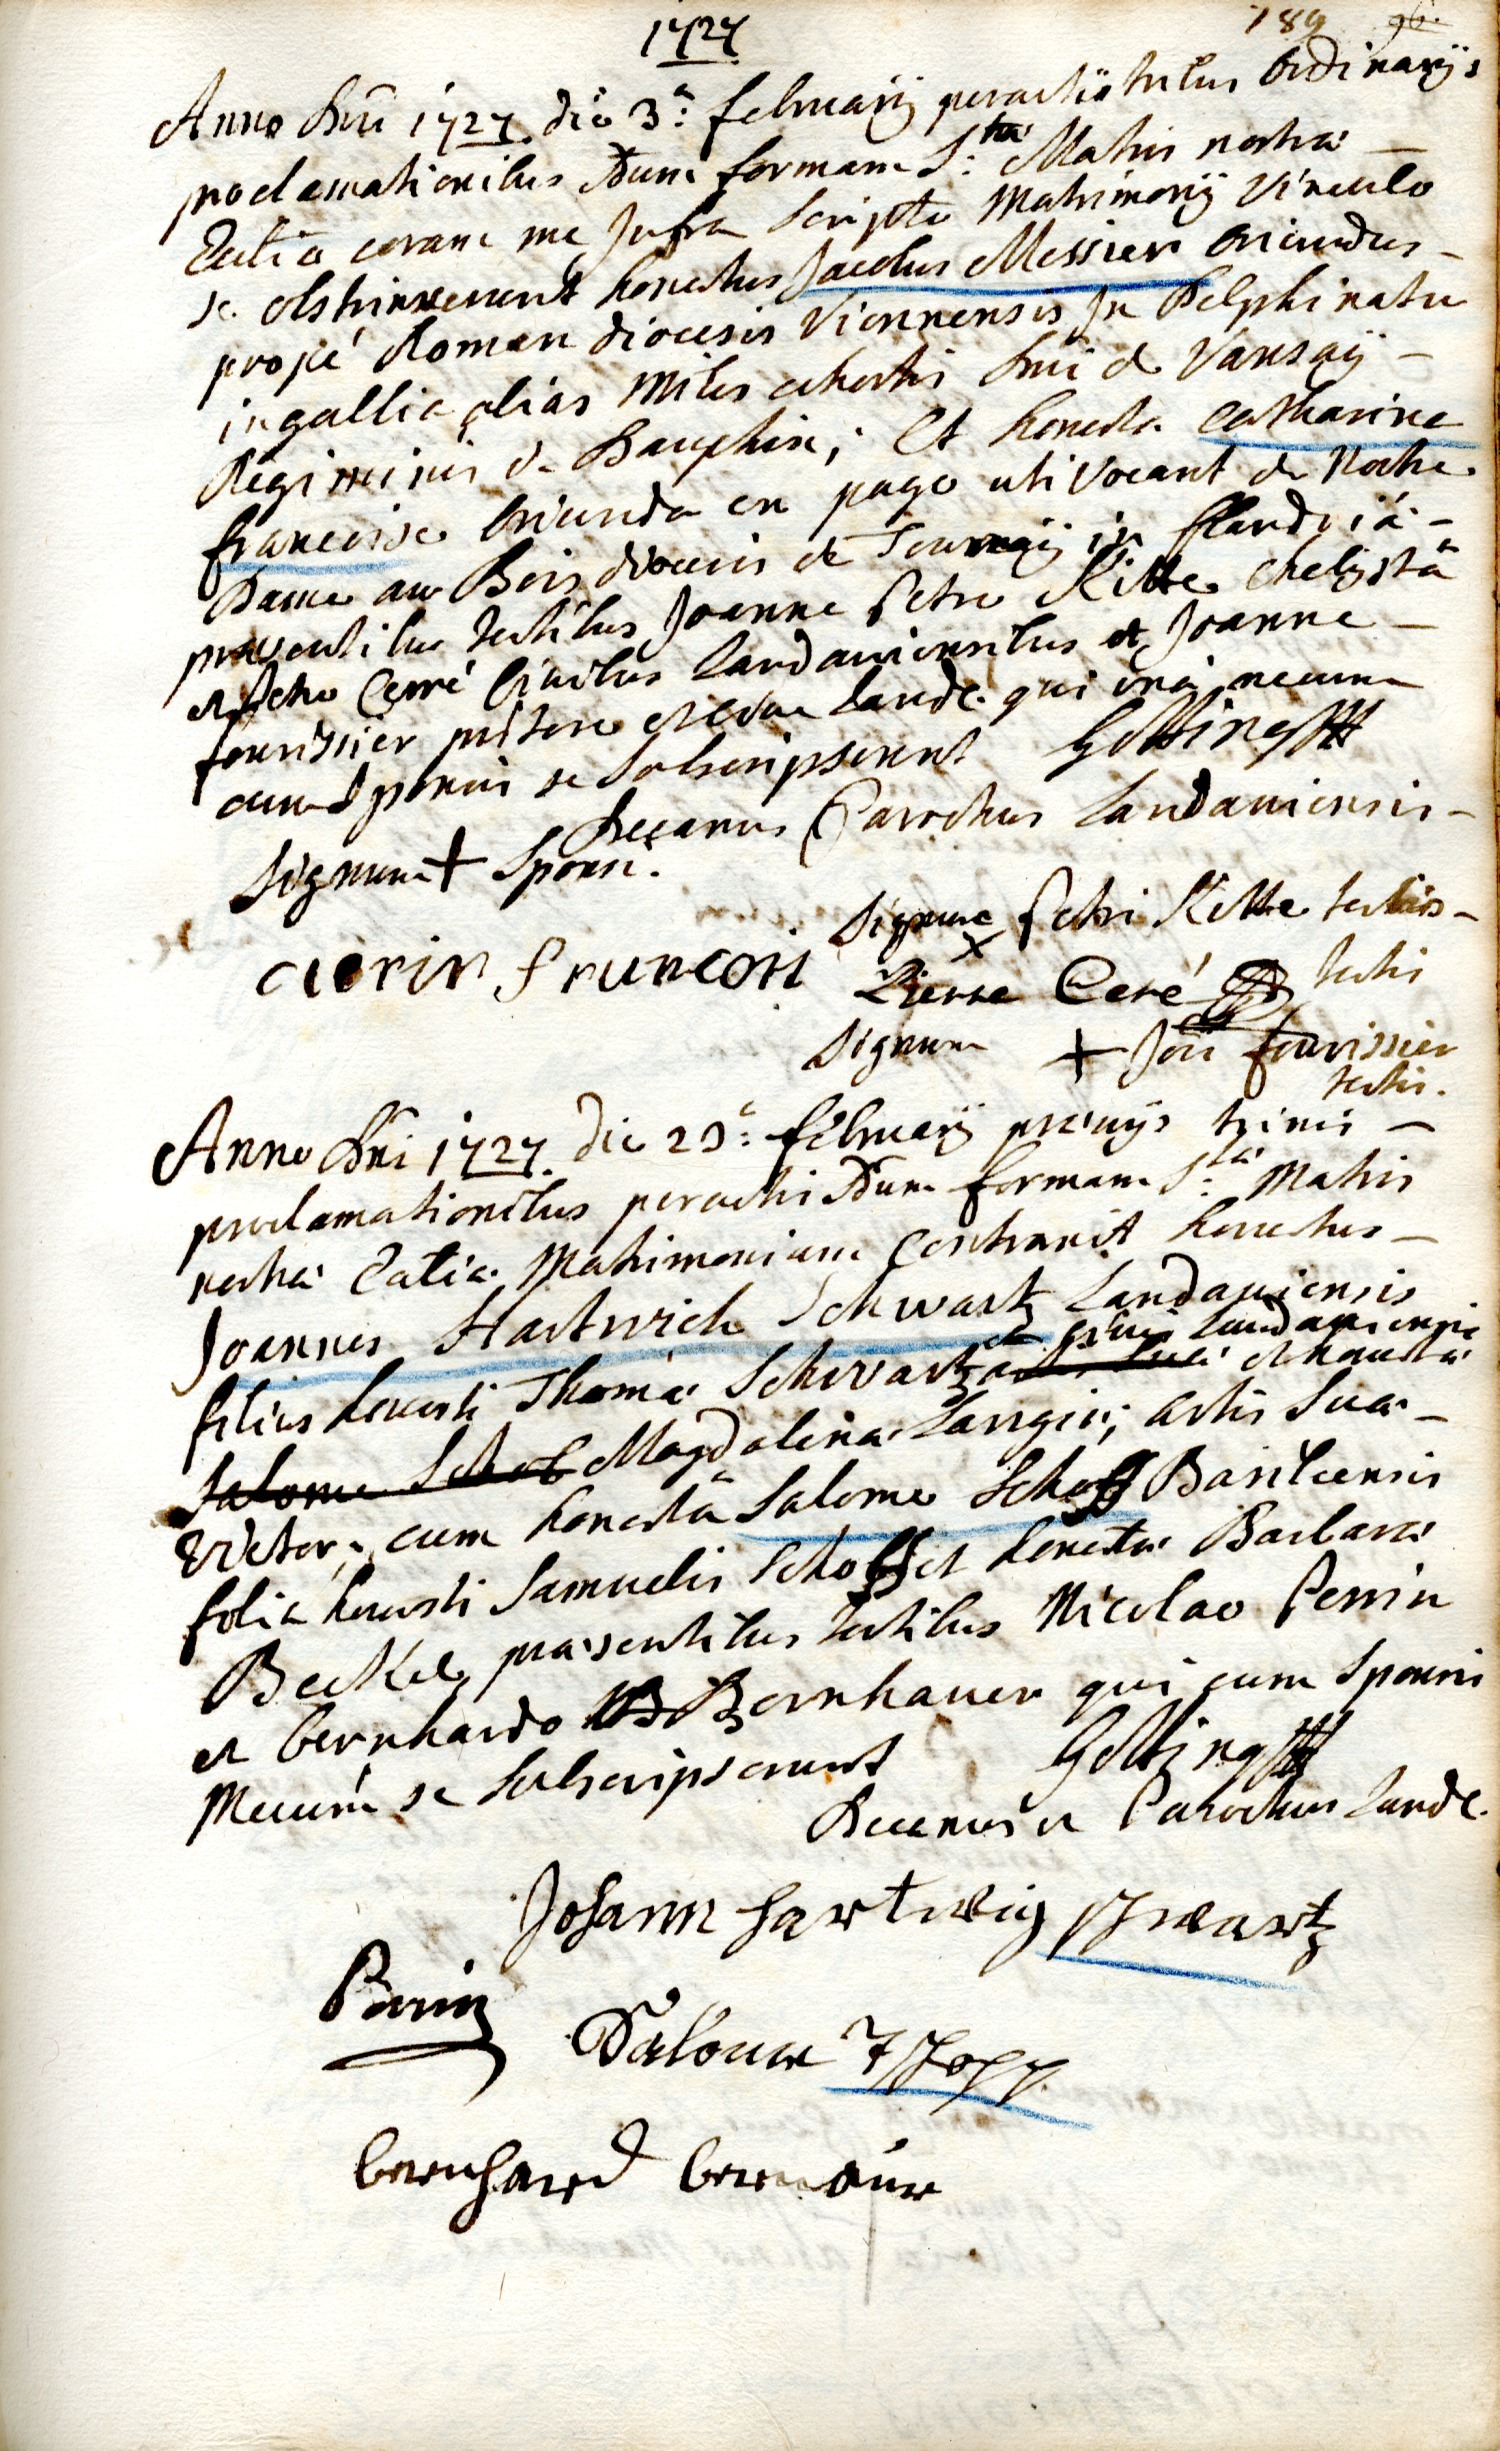 1727
189 96.
Anno Dni 1727 die 3a: februarij peractis tribus Ordinarijs
proclamationibus 2dum formam S:tæ Matris nostræ
Eccliæ coram me Infra Scripto Matrimonij Vinculo
se obstrinxerunt honestus Jacobus Messier oriundus
propé Roman diocesis Viennensis In Delphinatu
in gallia alias Miles cohortis Dni de Vansaÿ
Regiminis de Dauphin; Et honesta Catharina
francoise Oriunda en pago uti Vocant de Nostre
Dame au Bois diocesis de Tournaÿ in flandriá
præsentibus testibus Joanne Petro Kitte chelystâ
et Petro Cerré Civibus Landaviensibus et Joanne
fourissier pistore et cive Landc. qui unà mecum
cum Sponsis se Subscripserunt Götting
Decanus Parochus Landaviensis
Signum + Sponsi.
Signum x Petri Kitte testis
catrin francois
Pierre Ceré testis
Signum + Jois fourissier
testis.
Anno Dni 1727 die 23a: februarij prævijs trinis
proclamationibus peractis 2dum formam S:tæ Matris
nostræ Eccliæ Matrimonium Contraxit honestus
Joannes Hartwich Schwartz Landaviensis
filius honesti Thomæ Schwartz civis Landaviensis
et honestæ
Salome Magdalena Langin; artis Suæ
Vietor, cum honestâ Salome Schopff Basileensis
filia honesti Samuelis Schopff et honestæ Barbaræ
Beckel, præsentibus testibus Nicolao Perrin
et bernhardo Bernhauer qui cum Sponsis
Mecum se Subscripserunt Götting
Decanus et Parochus Landc.
Johann Hartwig Schwartz
Perrin
Salome Schopff
bernhard bernauer